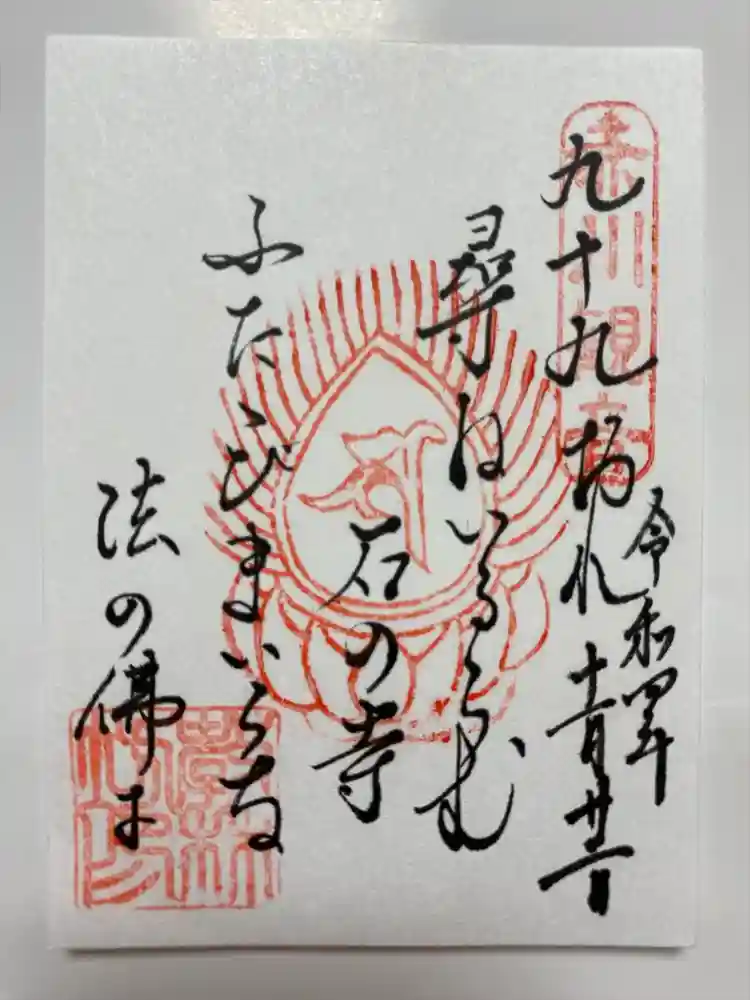 赤川観音
令和四年
十一月廿一日
九十九折れ
尋ねいるらむ
石の寺
ふたゝびまいらな
法の佛に